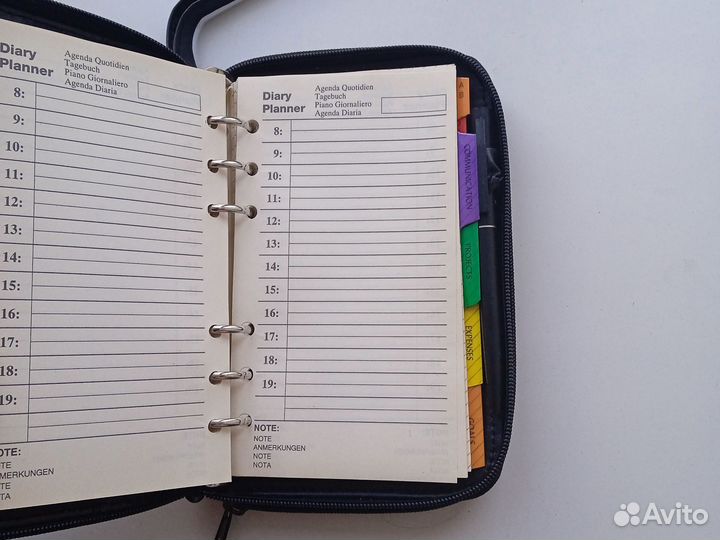 Diary
Planner
Agenda Quotidien
Tagebuch
Piano Giornaliero
Agenda Diaria
8:
9:
10:
11:
12:
13:
14:
15:
16:
17:
18:
19:
OTE:
NOTE
NMERKUNGEN
OTE
NOTA
Diary
Planner
Agenda Quotidien
Tagebuch
Piano Giornaliero
Agenda Diaria
8:
9:
10:
11:
12:
13:
14:
15:
16:
17:
18:
19:
NOTE:
NOTE
ANMERKUNGEN
NOTE
NOTA
A
B
COMMUNICATION
PROJECTS
EXPENSES
GOALS
Avito